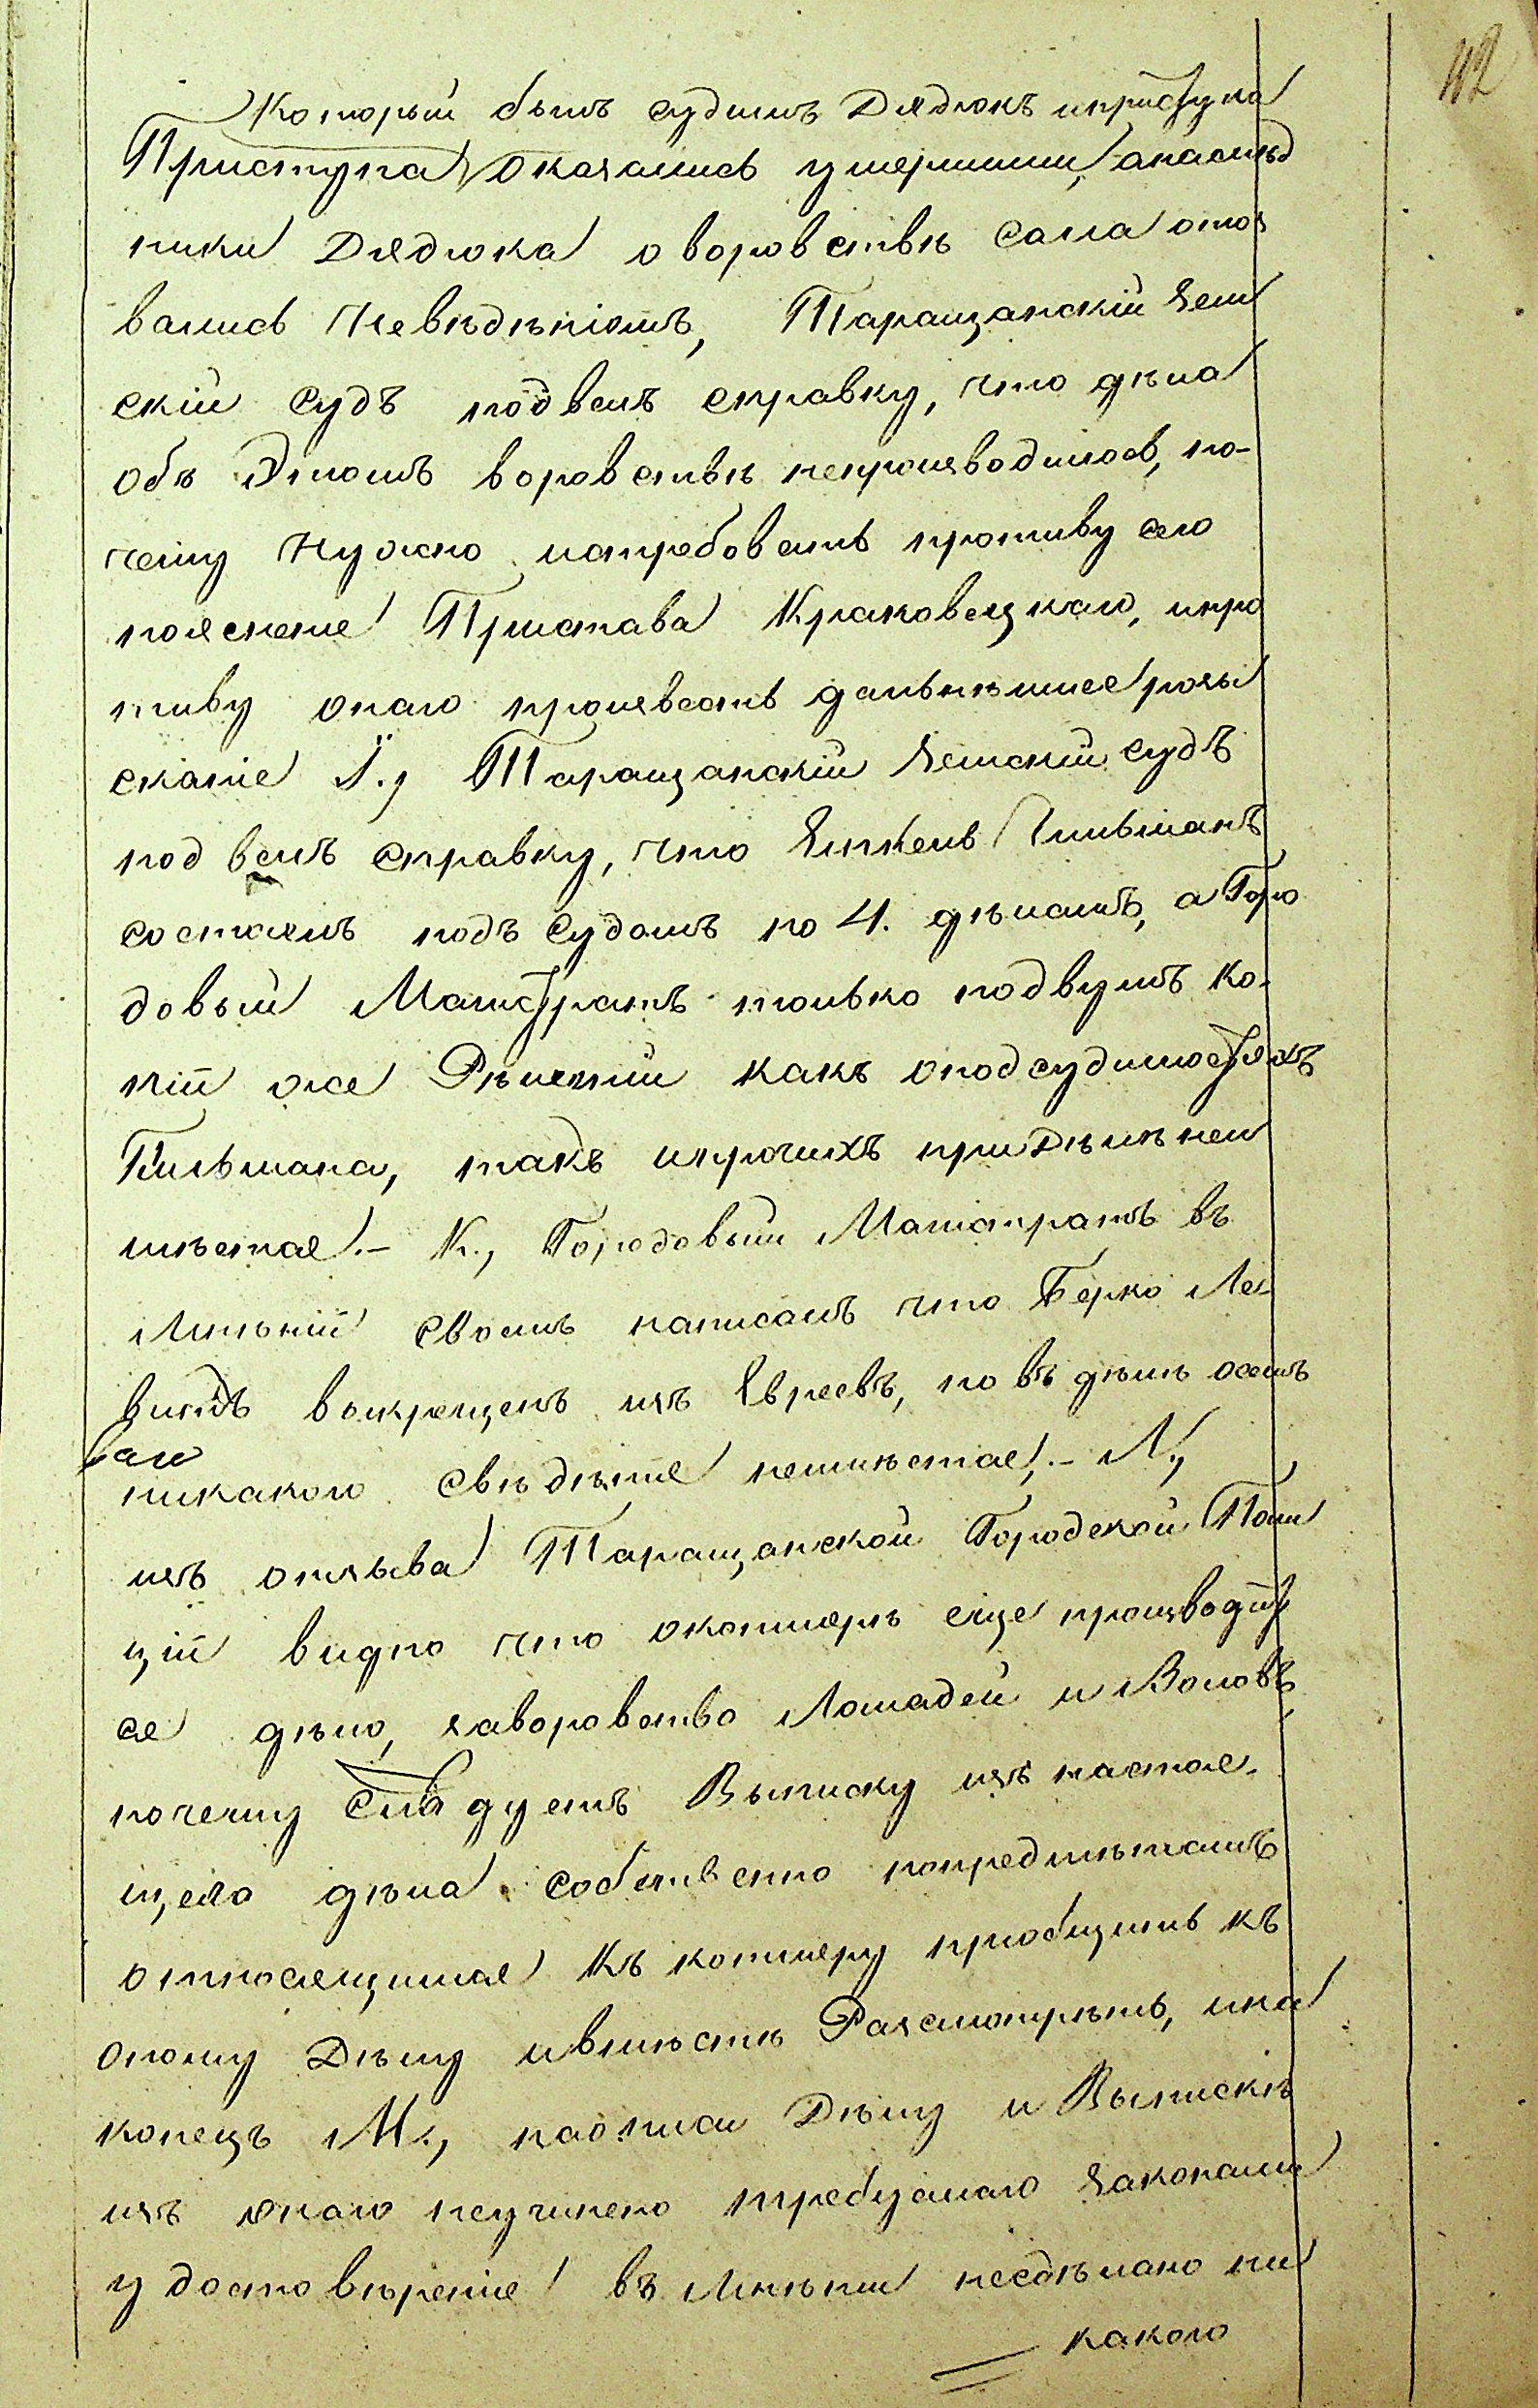 112
Который былъ судимъ Дядюкъ иприступа
Приступа оказались умершими, анаслѣд
ники Дядюка о воровствѣ сала отоз
вались Невѣдѣніемъ, Таращанскій Зем
скій Судъ подвелъ справку, что дѣла
объ Этомъ воровствѣ непроизводилось, по-
чему Нужно истребовать противу сего
пояснене Пристава Краковецкаго, ипро
тиву онаго произвесть дальнѣшее розы
сканіе Ї., Таращанскій Земскій Судъ
подвелъ справку, что Гильманъ
состоялъ подъ Судомъ по 4. дѣламъ, а Горо
довый Магистратъ только подвумъ ко-
піи же Рѣшеніи какъ оподсудимостяхъ
Гильмана, такъ ипрочихъ придѣлѣ неи
мѣетса.- К., Городовый Магистратъ въ
Мнѣніи своемъ написалъ что Берко Ле-
выкрещенъ изъ Евреевъ, но въ дѣлѣ осемъ
никакого свѣдѣніе неимѣетса,- Л.,
изъ отзыва Таращанской Городской Поли
ціи видно что окотмерѣ еще производит
ся дѣло, заворовство Лошадей и Воловъ,
почему Слѣдуетъ Выписку изъ настоя-
щего дѣла собственно попредмѣтамъ
относящимся Къ котмеру приобщить къ
оному Дѣлу ивмѣстѣ Разсмотрѣть, ина
конецъ М., по Дѣлу и Выпискѣ
изъ онаго неучинено требуемаго Законами
удостовѣреніе въ Мнѣніи несдѣлано ни
какого